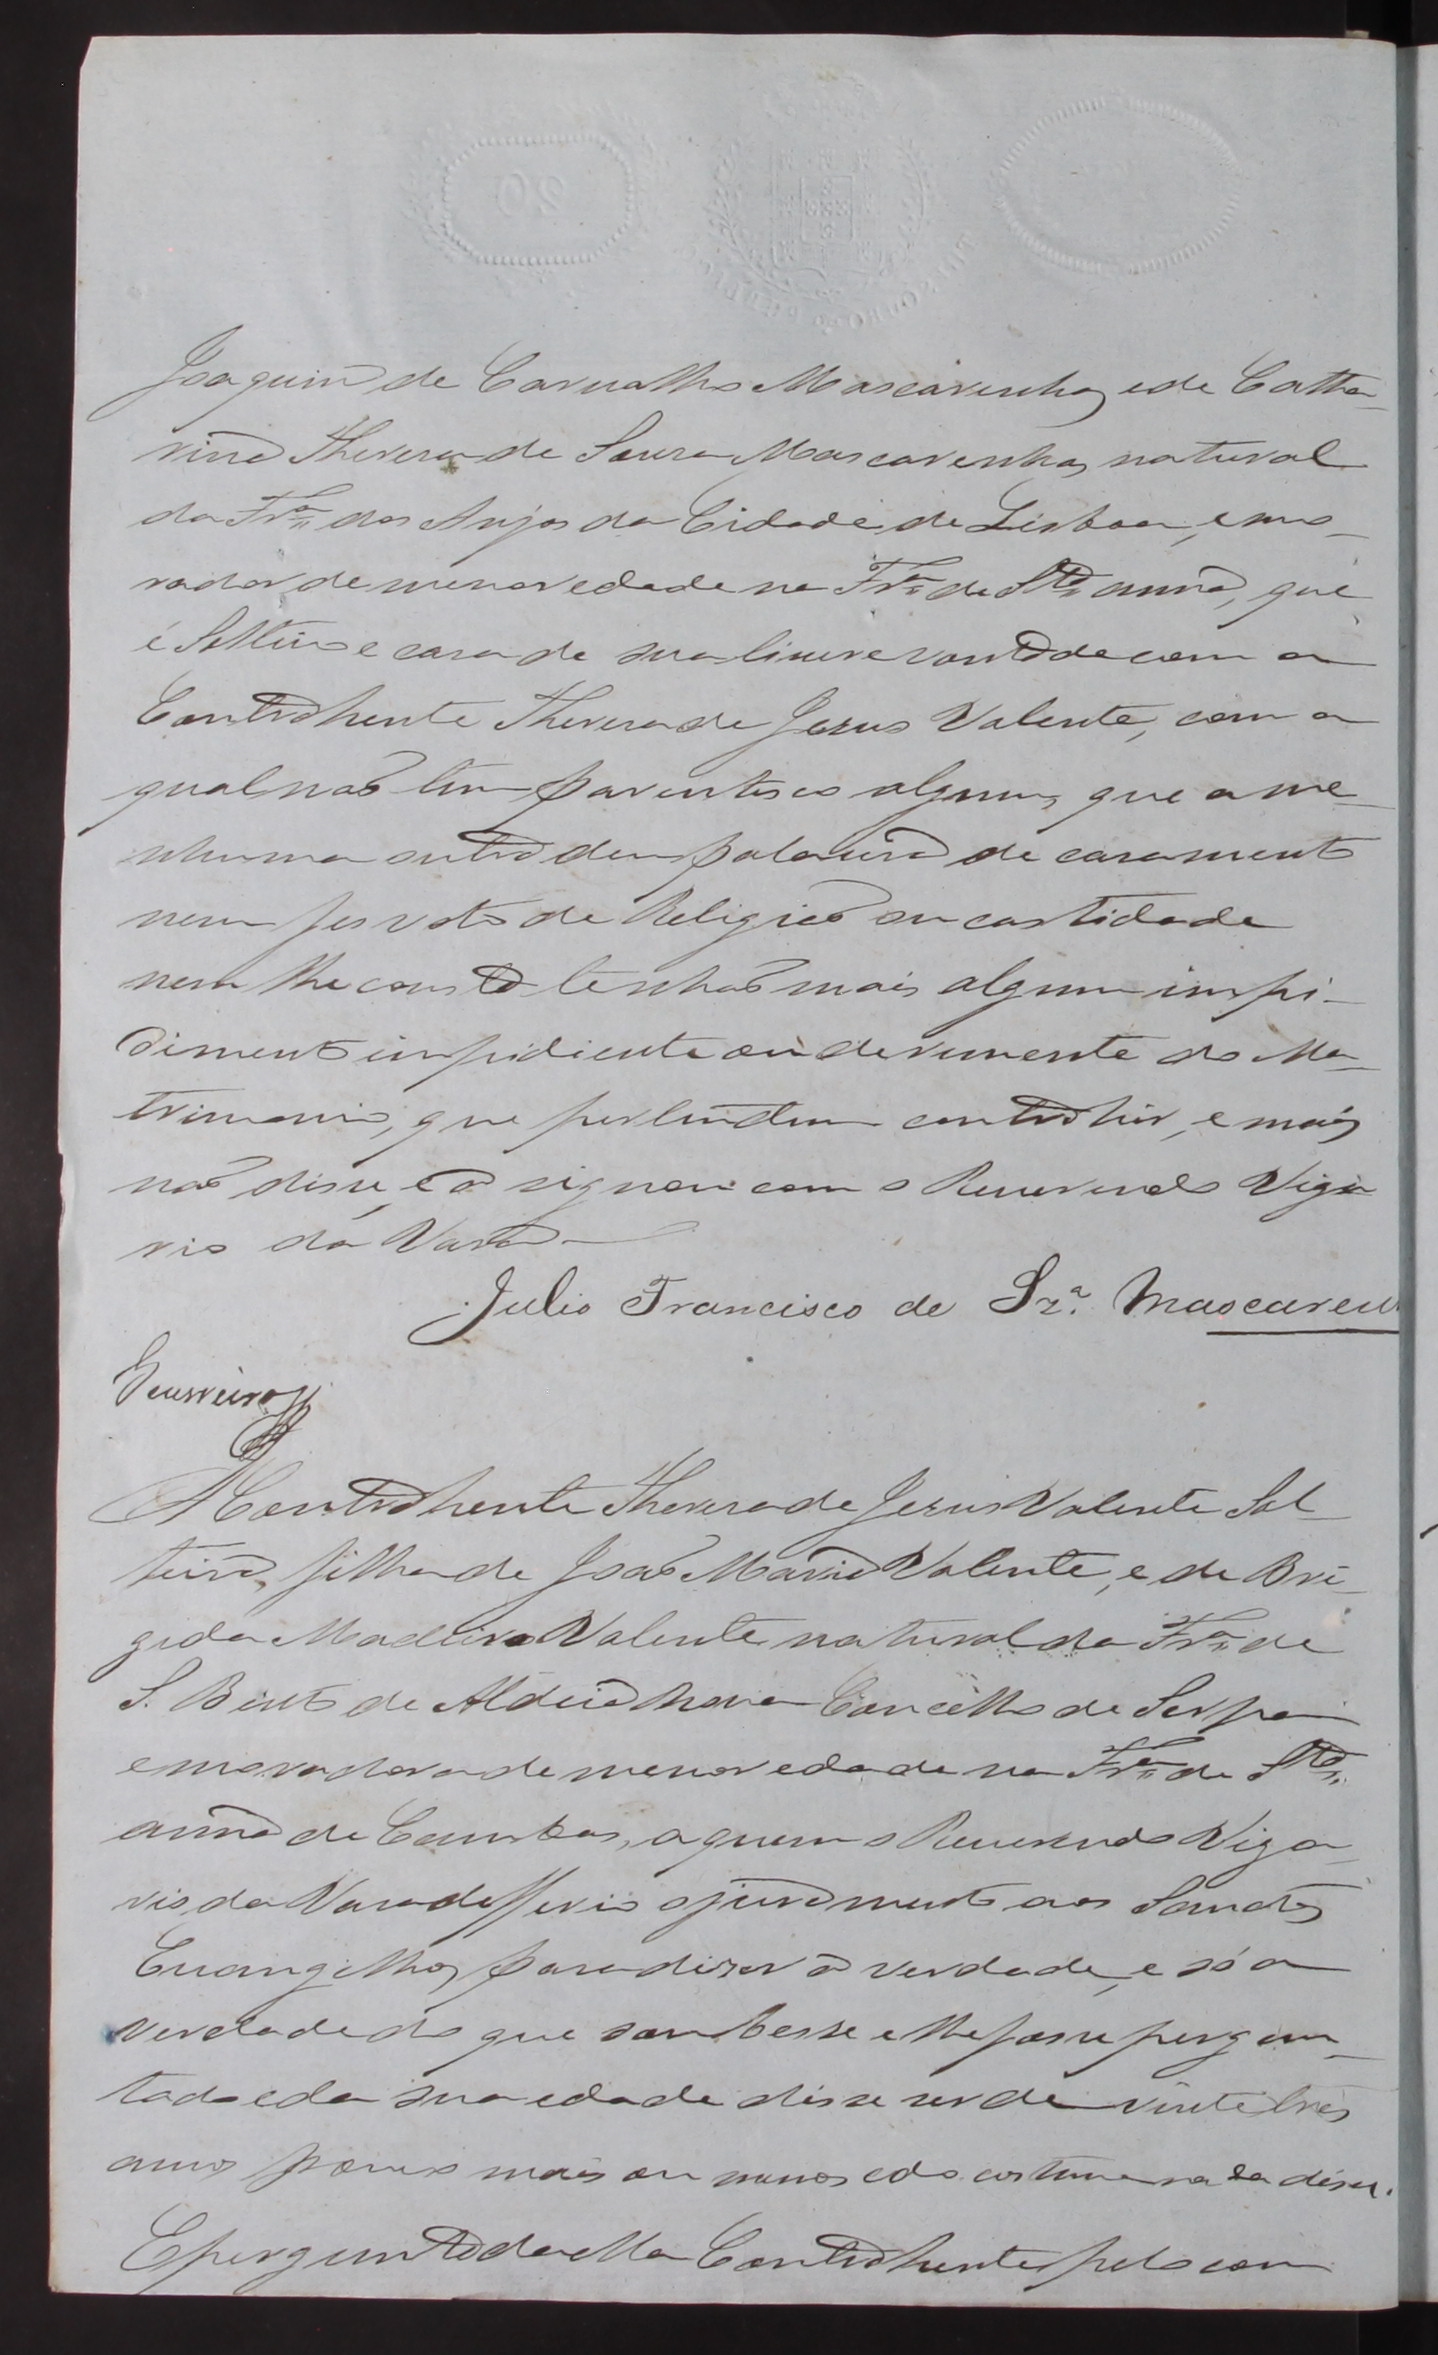 Joaquim de Carvalho Mascarenhas e de Catha-
rina Thereza de Souza Mascarenhas, natural
da Frª dos Anjos da Cidade de Lisboa, e mo-
rador de menor edade na Frª de Stª Anna, que
é Solteiro e casa de sua livre vontade com a
Contrahente Thereza de Jesus Valente, com a
qual não tem parentesco algum, que a ne-
nhuma outra deu palavra de casamento
nem fes voto de Religião ou castidade
nem lhe consta tenhão mais algum impi-
dimento impidiente ou derimente do Ma-
trimonio, que pertendem contrahir, e mais
não disse, e assignou com o Reverendo Viga-
rio da Vara
Julio Francisco de Szª. Mascaren
A Contrahente Thereza de Jesus Valente Sol-
teira, filha de João Maria Valente, e de Bri-
gida Madeira Valente natural da Frª de
S. Bento de Aldeia Nova Concelho de Serpa
e moradora de menor edade na Frª de Stª
Anna de Cambas, a quem o Reverendo Viga-
rio da Vara defferio o juramento aos Santos
Evangelhos, para dizer a verdade, e só a
verdade do que soubesse e lhe fosse pergun-
tado e da sua edade disse ser de vinte tres
annos pouco mais ou menos e do costume nada disse.
E perguntada ella Contrahente pelo con